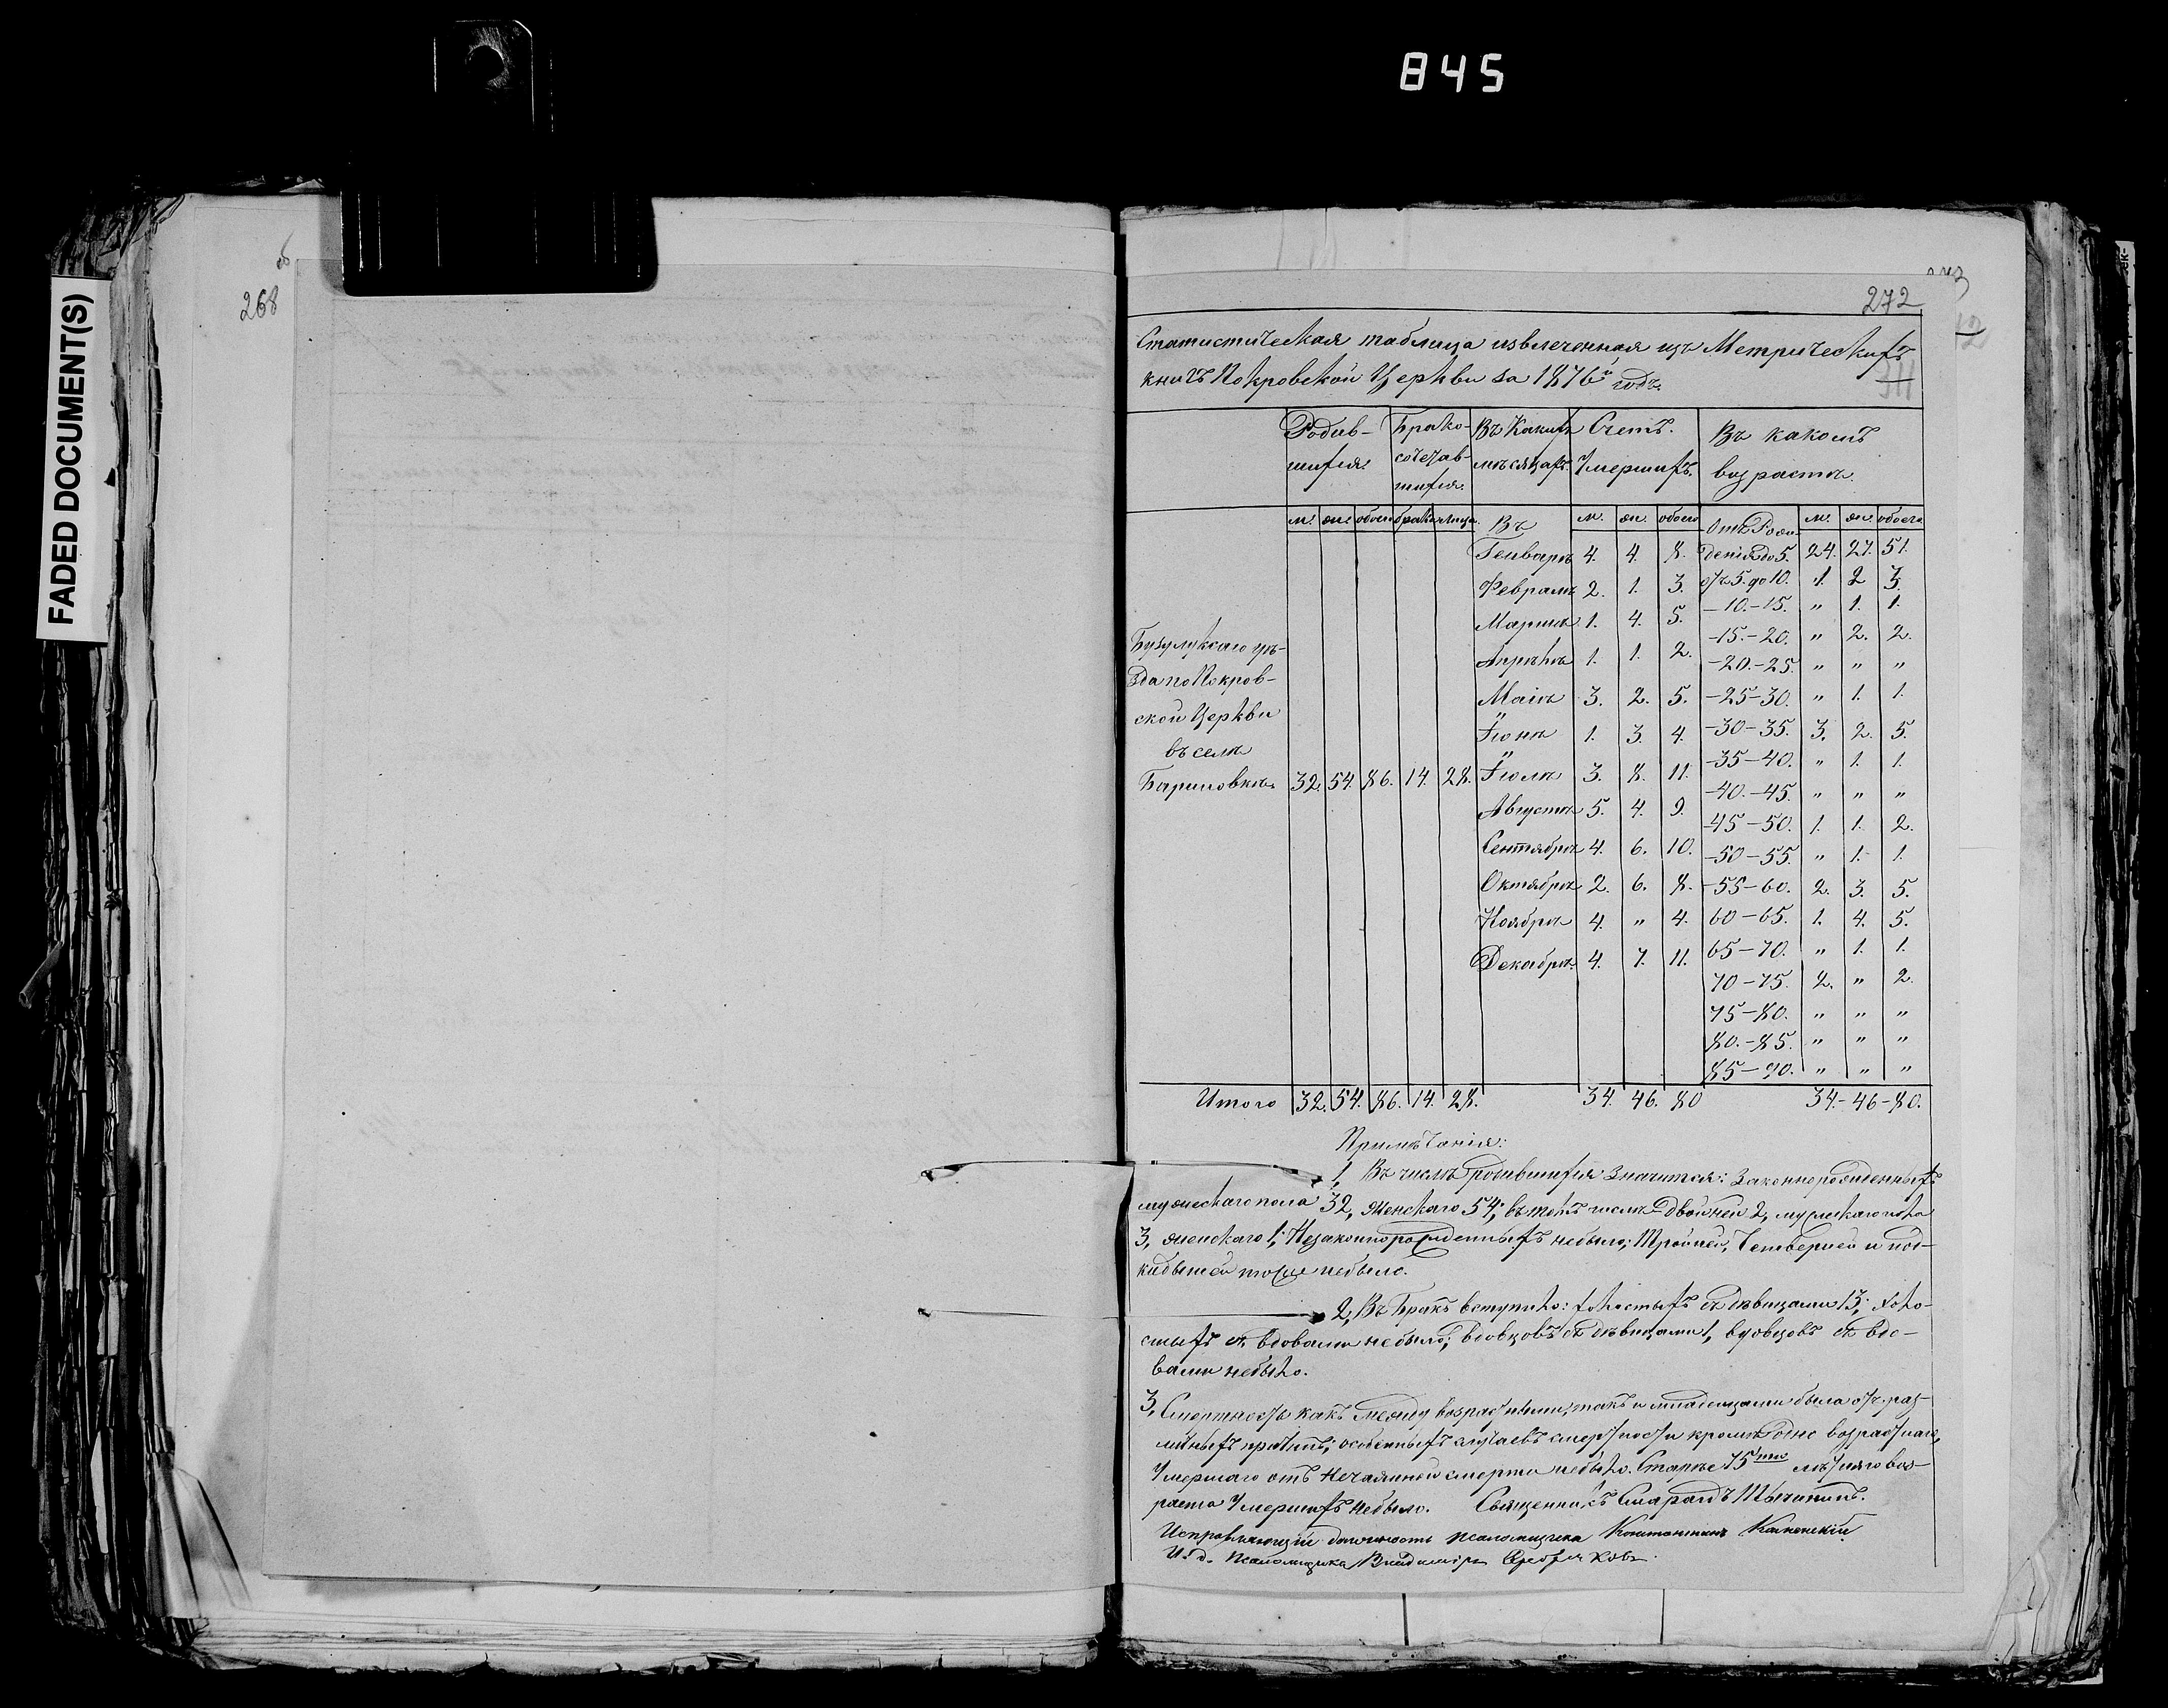 845
FADED DOCUMENT(S)
об
268
272
Статистическая таблица извлеченная изъ Метрическихъ
книгъ Покровской Церкви за 1876й годъ.
Родив- Брако- Въ Какихъ Счетъ. Въ какомъ
шихся сочетав- мѣсяцахъ. Умершихъ. возрастѣ.
шихся.
м. жен. обоего браковъ лица. Въ м. ж. обоего Отъ Рож- м. же. обоего
Генварѣ 4. 4. 8. денія до 5. 24. 27. 51.
Февралѣ 2. 1. 3. отъ 5. до 10. 1. 2 3.
Мартѣ 1. 4. 5. —10.—15. „ 1. 1.
Бузулукскаго уѣ-
Апрѣлѣ 1. 1. 2. —15.—20. „ 2. 2.
—20.—25. „ „ „
зда по Покров-
Маіѣ 3. 2. 5. —25—30. „ 1. 1.
ской Церкви
Іюнѣ 1. 3. 4. —30—35. 3. 2. 5.
въ селѣ
—35—40. „ 1. 1.
Бариновкѣ. 32. 54. 86. 14. 28. Іюлѣ 3. 8. 11.
—40.—45. „ „ „
Августѣ 5. 4. 9.
45—50. 1. 1. 2.
Сентябрѣ 4. 6. 10. —50—55. „ 1. 1.
Октябрѣ 2. 6. 8. —55—60. 2. 3. 5.
Ноябрѣ 4. „ 4. 60—65. 1. 4. 5.
Декабрѣ 4. 7. 11. 65—70. „ 1. 1.
70—75. 2. „ 2.
75—80. „ „ „
80.—85. „ „ „
85—90. „ „ „
Итого 32. 54. 86. 14. 28. 34. 46. 80 34.—46—80.
Примѣчанія:
1, Въ числѣ родившихся значится: Законнорожденныхъ
мужескаго пола 32, женскаго 54; въ томъ числѣ двойней 2, мужескаго пола
3, женскаго 1; Незаконнорожденныхъ небыло; Тройней, Четверней и под-
кидышей тоже небыло.
2, Въ Бракъ вступило: холостыхъ съ дѣвицами 13; холо-
стыхъ съ вдовами небыло; вдовцовъ съ дѣвицами 1, вдовцовъ съ вдо-
вами небыло.
3, Смертность какъ между возрастными, такъ и младенцами была отъ раз-
личныхъ причинъ; особенныхъ случаевъ смертности кромѣ возрастнаго,
Умершаго отъ нечаянной смерти небыло. Старѣе 75ти лѣтняго воз-
раста Умершихъ небыло. Священникъ Смарагдъ
Исправляющій должность псаломщика Константинъ Каменскій
И. д. псаломщика Владиміръ